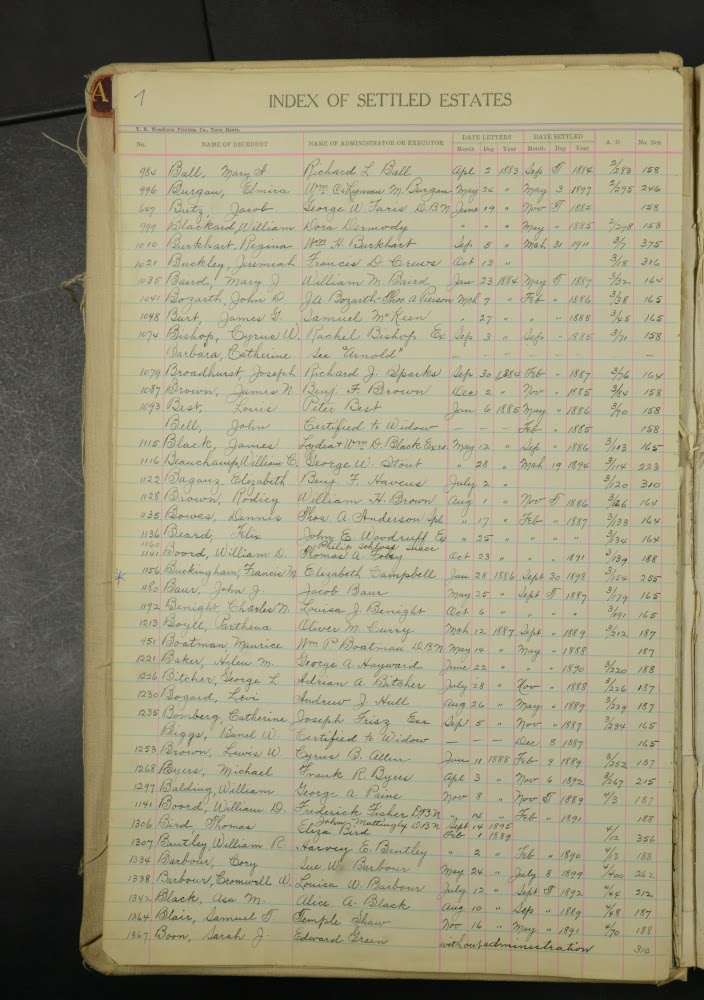 A
7
INDEX OF SETTLED ESTATES
T. R. Woodburn Printing Co., Terre Haute.
No. NAME OF DECEDENT NAME OF ADMINISTRATOR OR EXECUTOR DATE LETTERS DATE SETTLED A. D. No. Box
Month Day Year Month Day Year
984 Ball, Mary A Richard L Ball Apl 2 1883 Sep T 1884 2/283 158
996 Burgan, Elmira Wm C & Lyman M. Burgan May 24 " May 3 1897 2/295 246
647 Butz, Jacob George W Faris D.B.N June 19 " Nov T 1882 158
799 Blackard, William Dora Dermody " " " May " 1885 2/278 158
1010 Burkhart, Regina Wm H. Burkhart Sep 5 " Mch 31 1911 3/7 375
1021 Buckley, Jeremiah Francis D. Crews Oct 13 " 3/18 316
1035 Baird, Mary J William M. Baird Jan 23 1884 May T 1887 3/32 164
1041 Bozarth, John D J.A. Bozarth Thos A Pierson Mch 7 " Feb " 1886 3/38 165
1048 Burt, James G. Samuel McKeen " 27 " " " 1888 3/45 165
1074 Bishop, Cyrus W. Rachel Bishop Ex Sep 3 " Sep " 1885 3/71 158
Barbara, Catherine See "Arnold" — — — — — — —
1079 Broadhurst, Joseph Richard J. Sparks Sep 30 1884 Feb " 1887 3/76 164
1087 Brown, James N Benj F. Brown Dec 2 " Nov " 1885 3/84 158
1093 Best, Louis Peter Best Jan 6 1885 May " 1886 3/90 158
Bell, John Certified to Widow — — — Feb " 1885 158
1115 Black, James Lydia & Wm D. Black Exrs. May 12 " Sep " 1886 3/113 165
1116 Beauchamp, William C. George W. Stout " 28 " Mch 19 1894 3/114 223
1122 Baganz, Elizabeth Benj F. Havens July 2 " 3/120 310
1128 Brown, Rodicy William H. Brown Aug 1 " Nov T 1886 3/126 164
1135 Bowes, Dennis Thos A Anderson Spl " 17 " Feb " 1887 3/133 164
1136 Beard, Felix John E Woodruff Ex " 25 " " " " 3/134 164
1160 Philip Schloss Succr
1141 Boord, William D. Thomas A. Foley Oct 23 " " " 1891 3/139 188
* 1156 Buckingham, Francis M. Elizabeth Campbell Jan 28 1886 Sept 30 1898 3/154 255
1180 Baur, John J. Jacob Baur May 25 " Sept T 1887 3/179 165
1192 Benight Charles N. Louisa J. Benight Oct 6 " " " " 3/191 165
1213 Boyll, Parthena Oliver M. Curry Mch 12 1887 Sept " 1889 3/212 187
451 Boatman, Maurice Wm P. Boatman D.B.N May 14 " May " 1888 187
1221 Baker, Helen M. George A Hayward June 22 " " " 1890 3/220 188
1226 Bitcher, George L Adrian A. Bitcher July 28 " Nov " 1888 3/226 187
1230 Bogard, Levi Andrew J. Hull Aug 26 " May " 1889 3/229 187
1235 Bomberg, Catherine Joseph Frisz Exr Sep 5 " Nov " 1887 3/234 165
Biggs, W. Certified to Widow — — — Dec 8 1887 165
1253 Brown, Lewis W. Cyrus B. Allen Jan 11 1888 Feb 9 1889 3/252 187
1268 Byers, Michael Frank R. Byers Apl 3 " Nov 6 1892 3/267 215
1297 Balding, William George A. Paine Nov 8 " Nov T 1889 4/3 187
1141 Boord, William D. Frederick Fisher D.B.N " 14 " Feb " 1891 188
John Mattingly D.B.N Sept 14 1895
1306 Bird, Thomas Eliza Bird Feb 1 1889 4/12 356
1307 Bentley William R. Harvey E. Bentley " 2 " Feb " 1890 4/13 188
1334 Barbour, Cory Sue W. Barbour May 24 " July 8 1899 4/400 262
1338 Barbour, Cromwell W. Louisa W. Barbour July 12 " Sept T 1892 4/44 212
1342 Black, Asa M. Alice A. Black Aug 10 " Sep " 1889 4/48 187
1364 Blair, Samuel T Temple Shaw Nov 16 " May " 1891 4/70 188
1367 Boon, Sarah J. Edward Green without administration 310